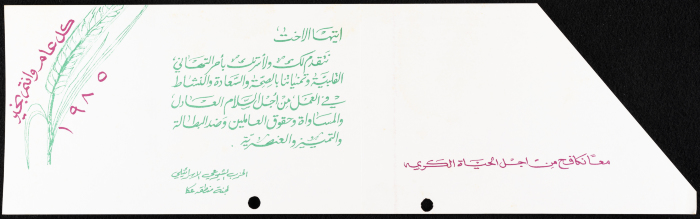 كل عام وانتم بخير
١٩٨٥
ايتها الاخت
نتقدم لك ولأسرتك بأحر التهاني
القلبية وتمنياتنا بالصحة والسعادة والنشاط
في العمل من اجل السلام العادل
والمساواة وحقوق العاملين وضد البطالة
والتمييز والعنصرية.
الحزب الشيوعي الاسرائيلي
لجنة منطقة عكا
معاً نكافح من اجل الحياة الكريمة